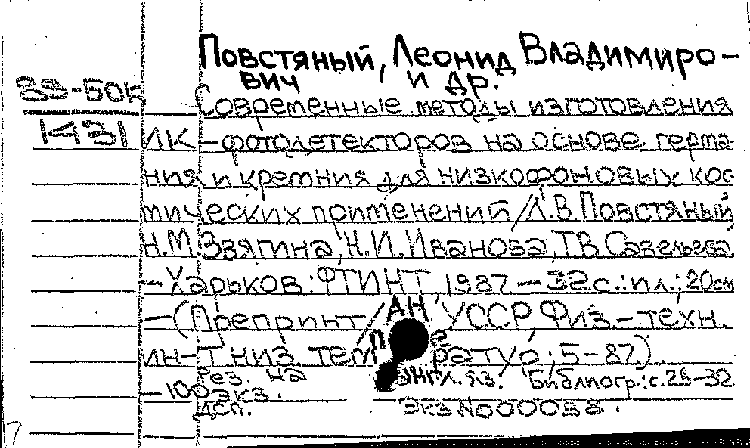 Повстяный, Леонид Владимиро-
вич и др.
88-50К
Современные методы изготовления
1431 ИК-фотодетекторов на основе герма-
ния и кремния для низкофоновых кос
мических применений /Л.В.Повстяный
Н.М.Звягина, Н.И.Иванова, Т.В.Савельева
-Харьков: ФТИНТ 1987-32с.:ил.; 20см
-(Препринт/АН УССР Физ.-техн.
ин-т низ. температур; 5-87)
Рез. на англ. яз. Библиогр.: с.28-32
-100экз.
ДСП. Экз N000058.